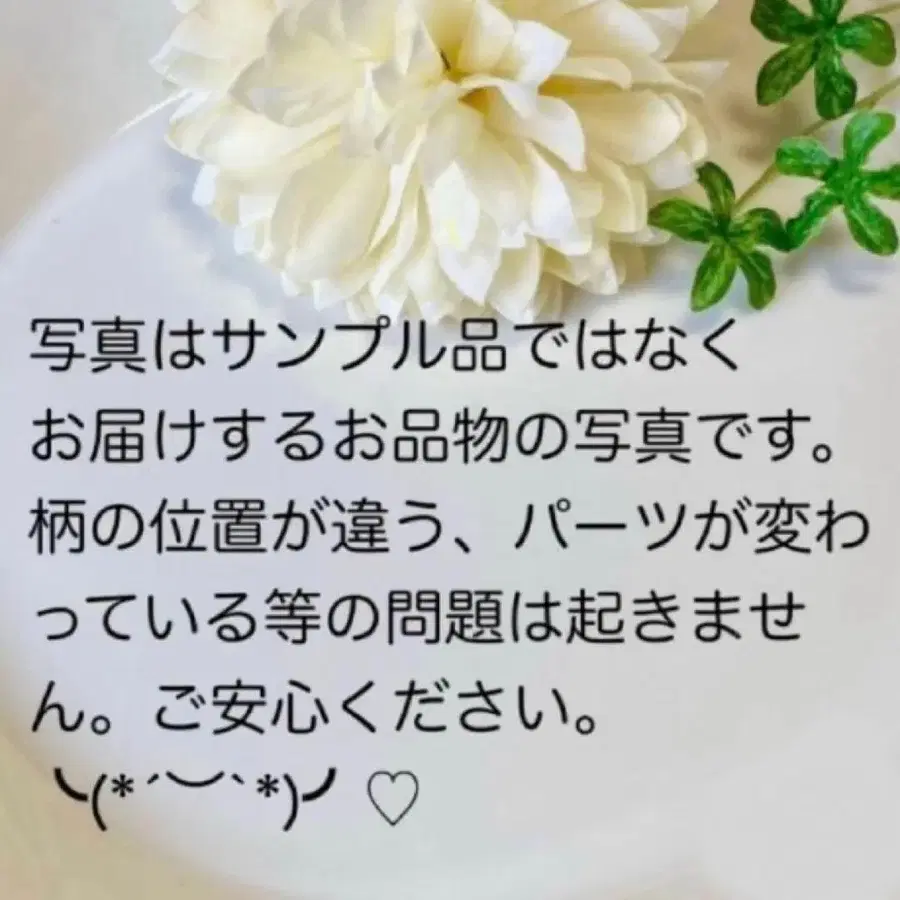 写真はサンプル品ではなく
お届けするお品物の写真です。
柄の位置が違う、パーツが変わ
っている等の問題は起きませ
ん。ご安心ください。
╰(*´︶`*)╯♡